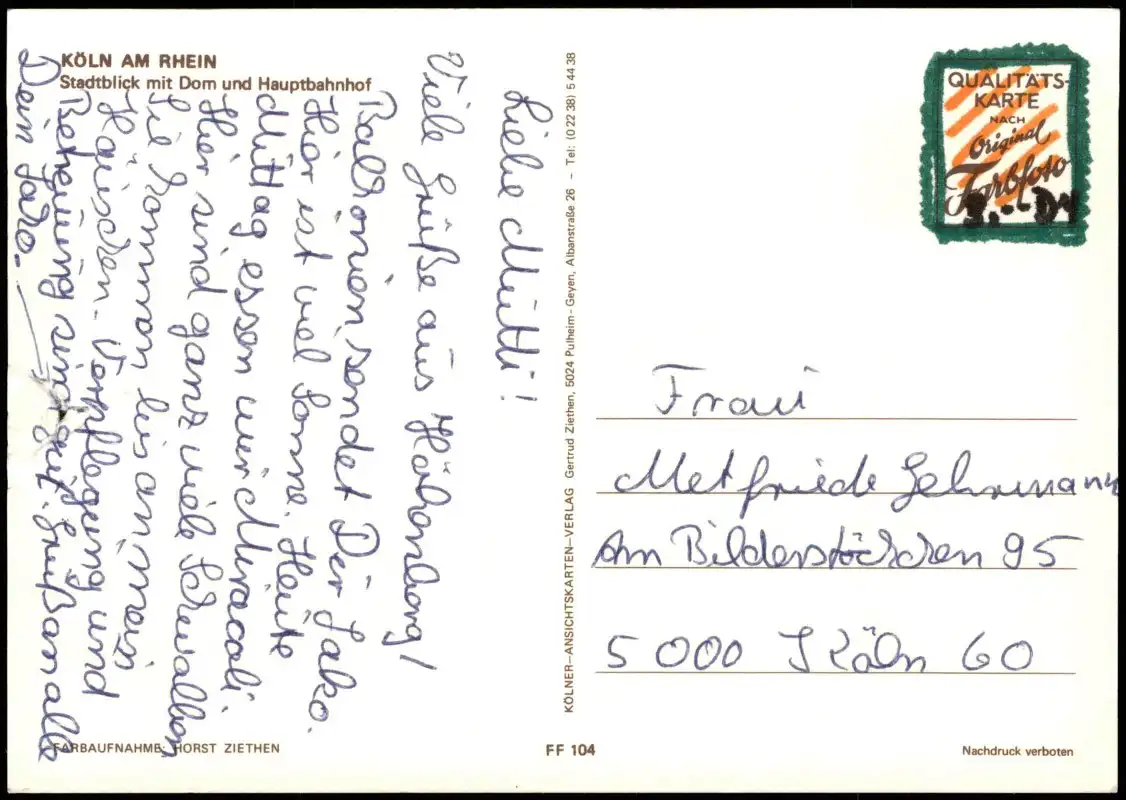 KÖLN AM RHEIN
Stadtblick mit Dom und Hauptbahnhof
Liebe Mutti!
Viele Grüße aus Höhenberg/
Balkonien, sendet Dir Jako.
Hier ist viel Sonne. Heute
Mittag essen wir Miracoli.
Hier sind ganz viele Schwalben
Sie kommen bis an mein
Häuschen. Verpflegung und
Betreuung sind gut. Gruß an alle
Dein Jako.
KÖLNER-ANSICHTSKARTEN-VERLAG Gertrud Ziethen, 5024 Pulheim-Geyen, Albanstraße 26 - Tel: (0 22 38) 5 44 38
QUALITÄTS-
KARTE
NACH
Original
Farbfoto
3.-- DM
Frau
Metfriede Gehrmann
Am Bilderstöckchen 95
5000 Köln 60
FARBAUFNAHME: HORST ZIETHEN
FF 104
Nachdruck verboten